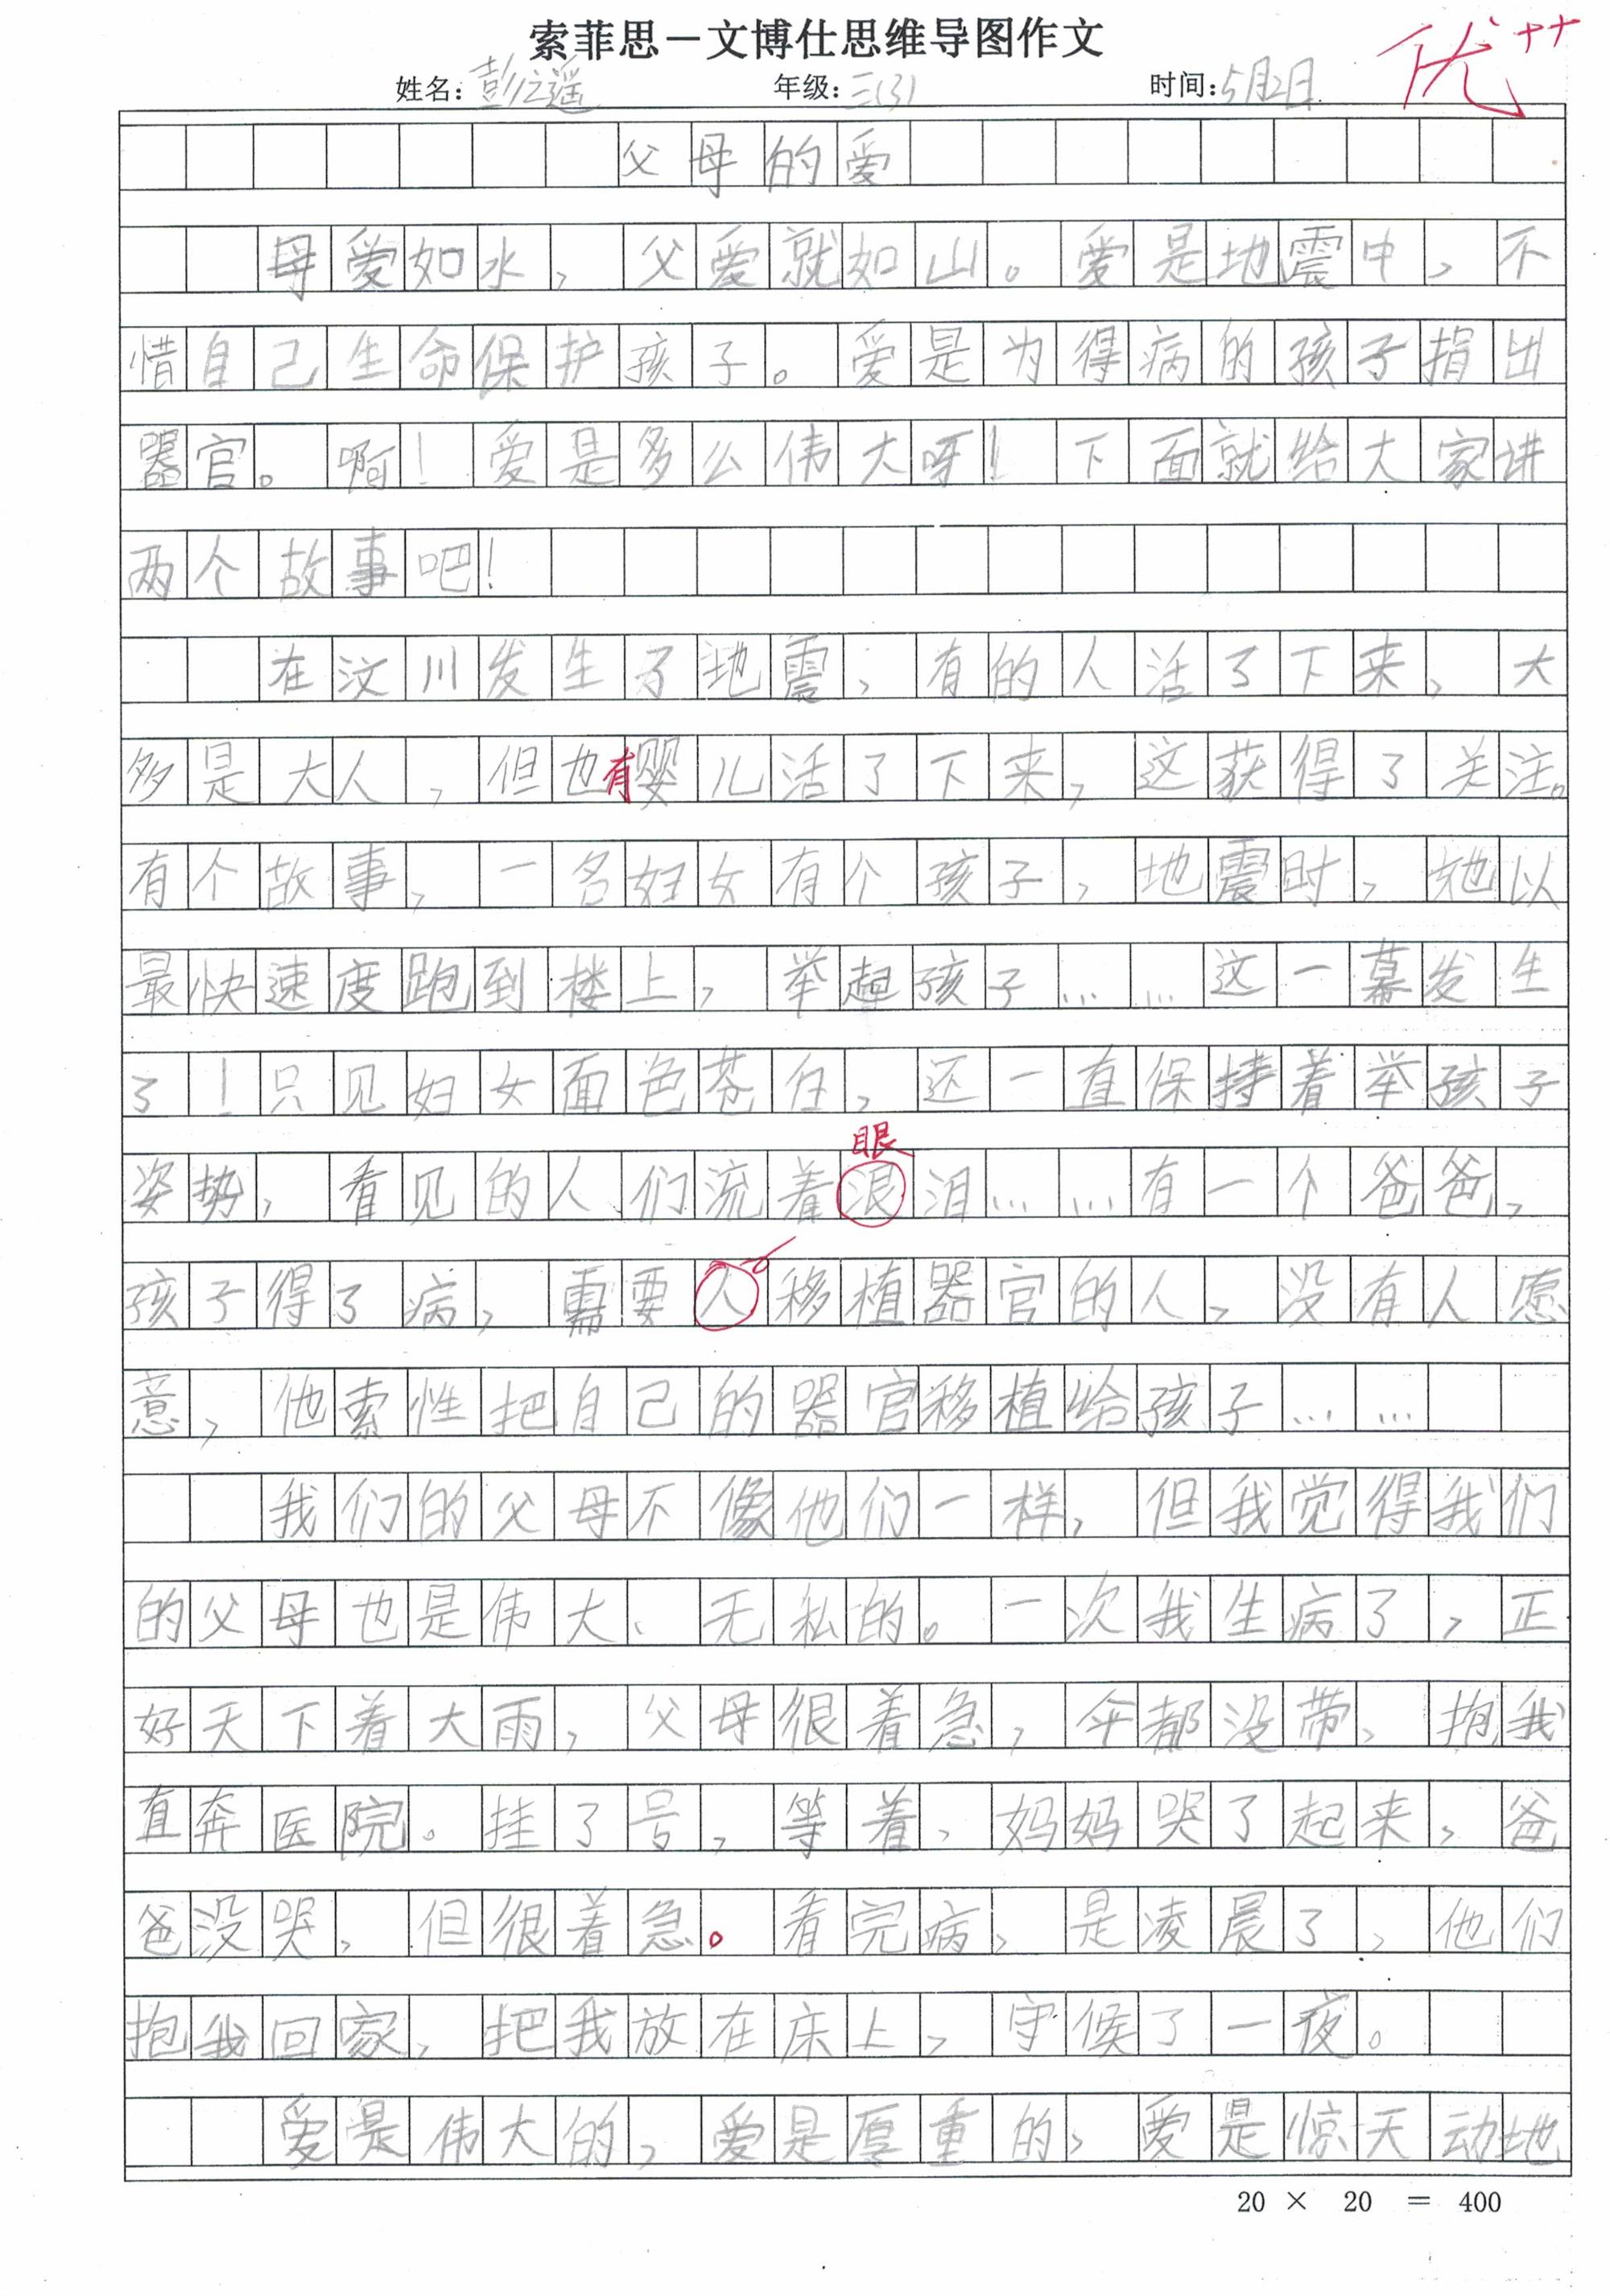 索菲思－文博仕思维导图作文
优++
姓名：彭之遥 年级：三(3) 时间：5月2日
父母的爱
母爱如水，父爱就如山。爱是地震中，不
惜自己生命保护孩子。爱是为得病的孩子捐出
器官。啊！爱是多么伟大呀！下面就给大家讲
两个故事吧！
在汶川发生了地震，有的人活了下来，大
多是大人，但也有婴儿活了下来，这获得了关注。
有个故事，一名妇女有个孩子，地震时，她以
最快速度跑到楼上，举起孩子……这一幕发生
了！只见妇女面色苍白，还一直保持着举孩子
眼
姿势，看见的人们流着泪……有一个爸爸，
孩子得了病，需要人移植器官的人，没有人愿
意，他索性把自己的器官移植给孩子……
我们的父母不像他们一样，但我觉得我们
的父母也是伟大、无私的。一次我生病了，正
好天下着大雨，父母很着急，伞都没带、抱我
直奔医院。挂了号，等着，妈妈哭了起来，爸
爸没哭，但很着急。看完病，是凌晨了，他们
抱我回家，把我放在床上，守候了一夜。
爱是伟大的，爱是厚重的，爱是惊天动地
20 × 20 ＝ 400